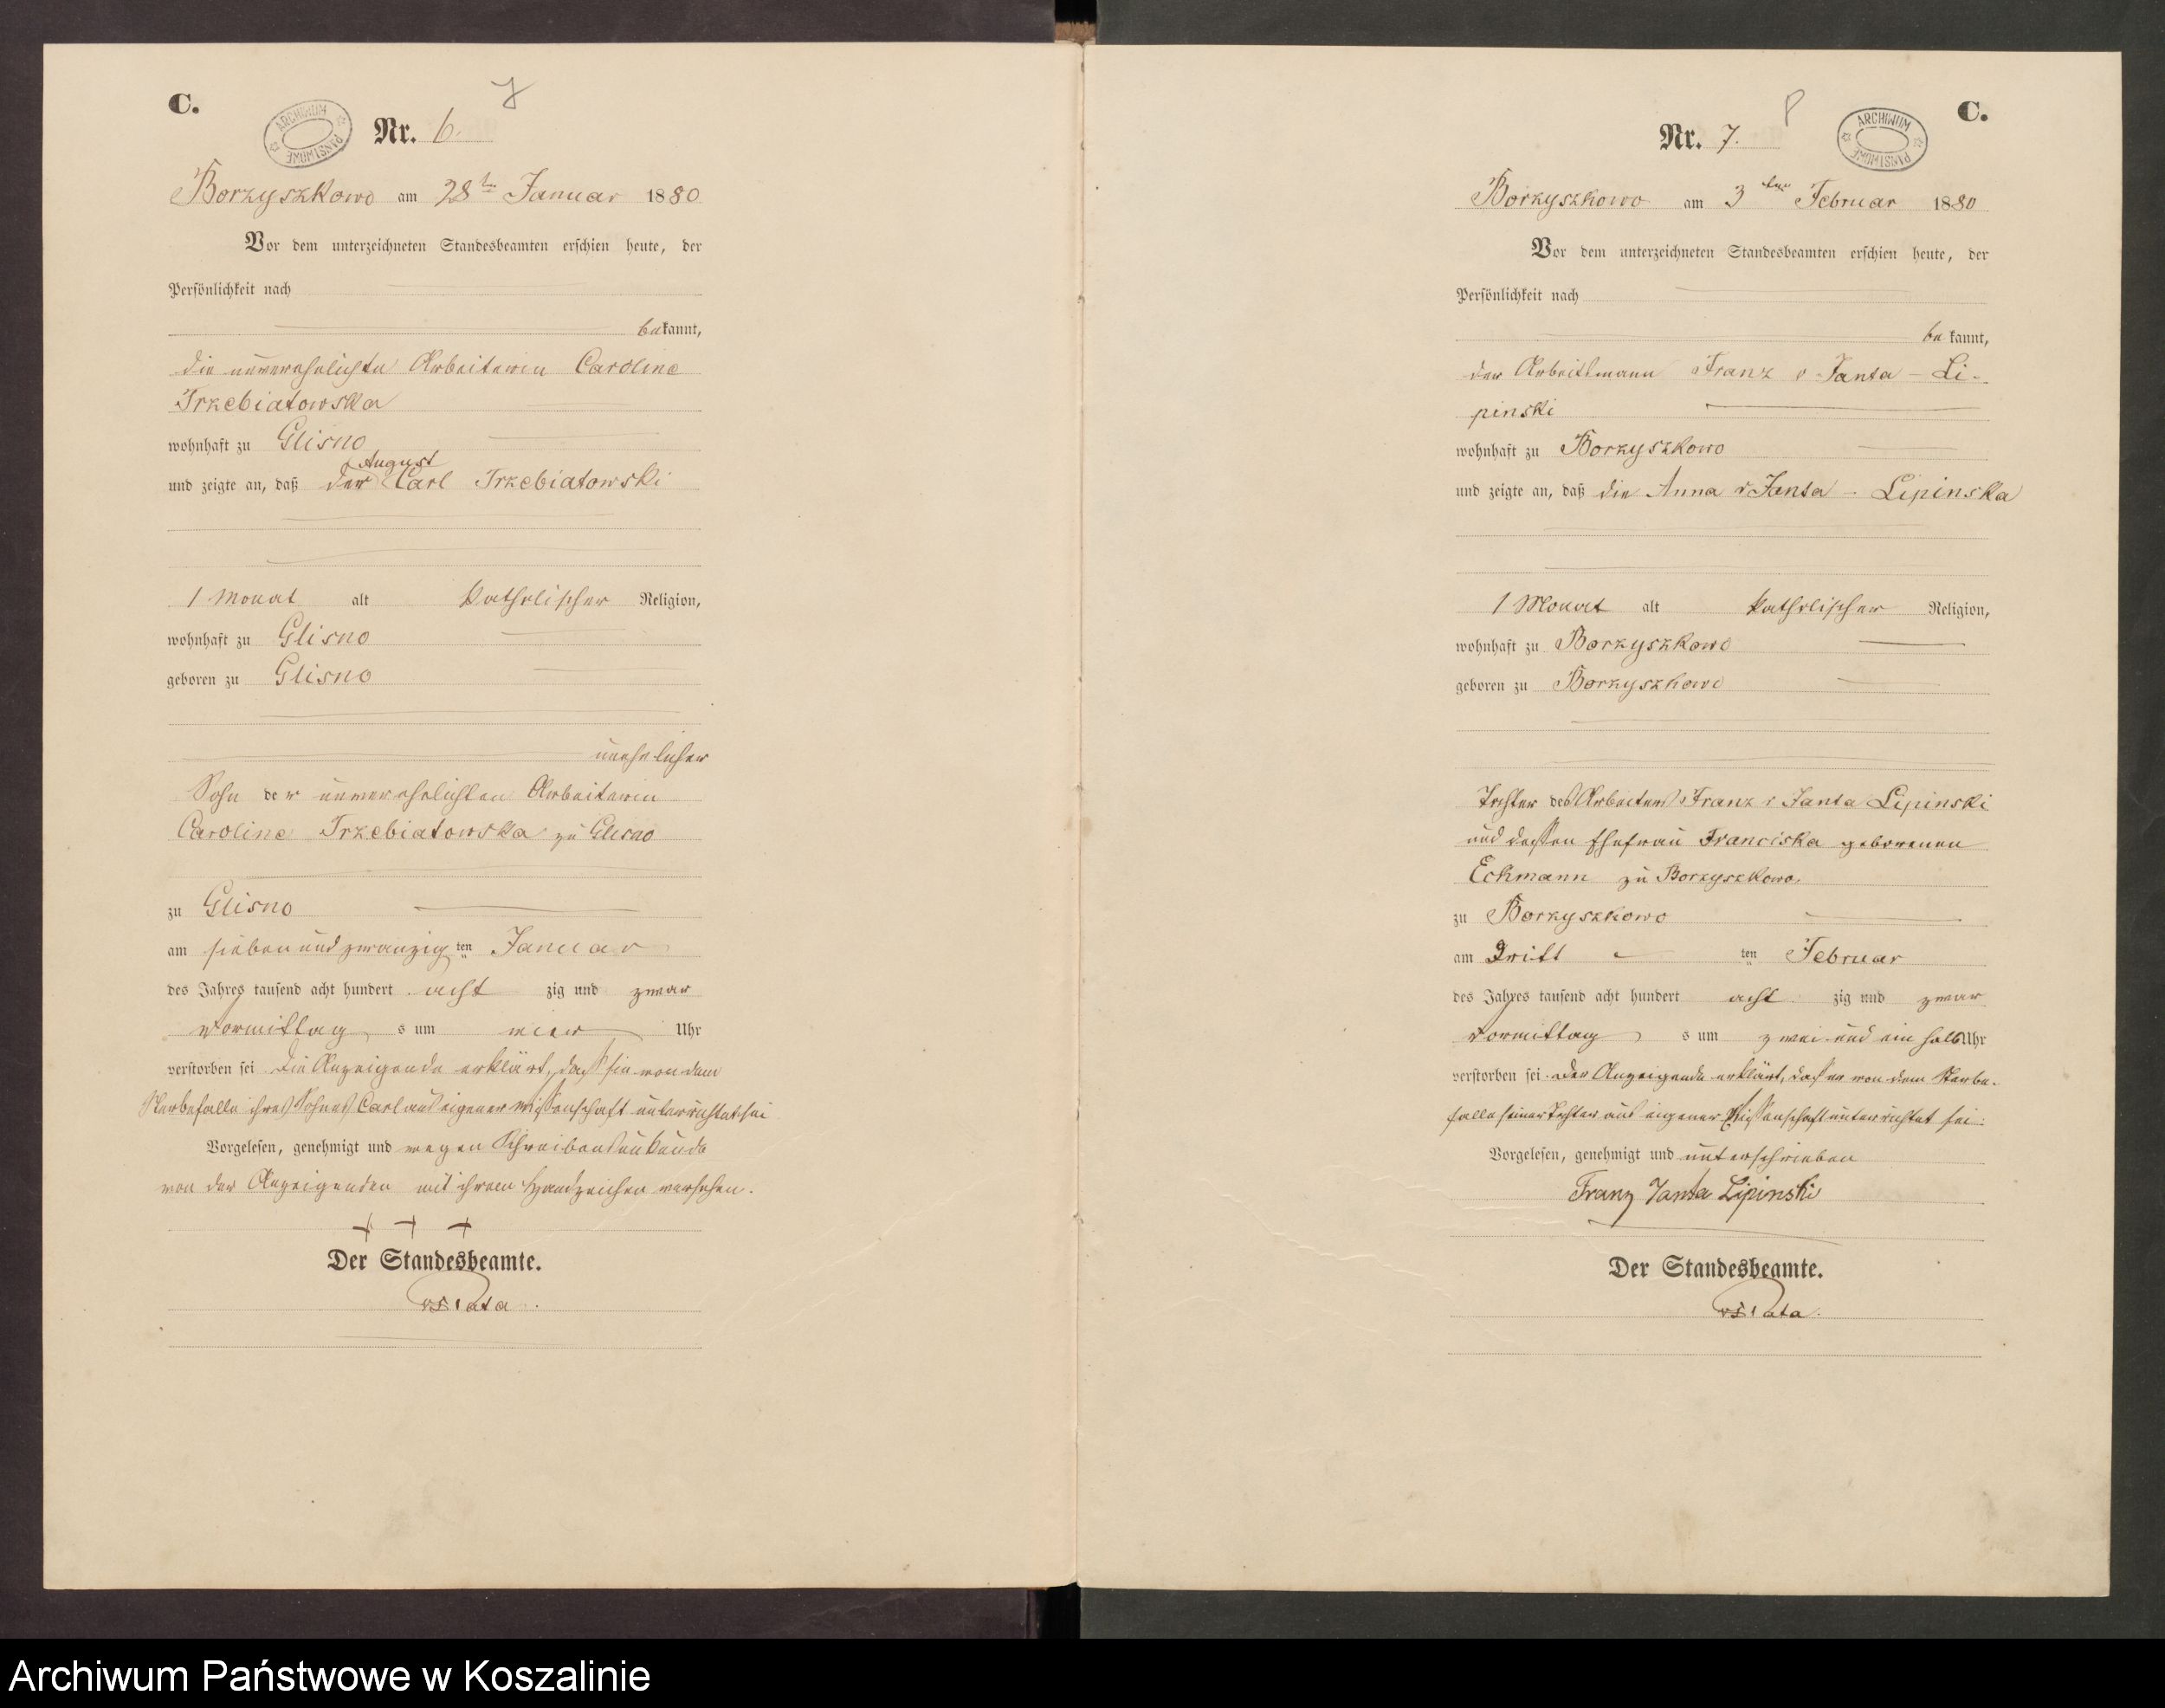 C.
7
ARCHIWUM PAŃSTWOWE
Nr. 6.
Borzyszkowo am 28ten Januar 1880
Vor dem unterzeichneten Standesbeamten erschien heute, der
Persönlichkeit nach
bekannt,
die unverehelichte Arbeiterin Caroline
Trzebiatowska
wohnhaft zu Glisno
August
und zeigte an, daß der Carl Trzebiatowski
1 Monat alt katholischer Religion,
wohnhaft zu Glisno
geboren zu Glisno
unehelicher
Sohn der unverehelichten Arbeiterin
Caroline Trzebiatowska zu Glisno
zu Glisno
am siebenundzwanzigten Januar
des Jahres tausend acht hundert acht zig und zwar
Vormittags um vier Uhr
verstorben sei Die Anzeigende erklärt, daß sie von dem
Sterbefalle ihres Sohnes Carl aus eigener Wissenschaft unterrichtet sei
Vorgelesen, genehmigt und wegen Schreibensunkunde
von der Anzeigenden mit ihrem Handzeichen versehen.
+ + +
Der Standesbeamte.
C.
8
ARCHIWUM PAŃSTWOWE
Nr. 7.
Borzyszkowo am 3ten Februar 1880
Vor dem unterzeichneten Standesbeamten erschien heute, der
Persönlichkeit nach
bekannt,
der Arbeitsmann Franz v Janta - Li-
pinski
wohnhaft zu Borzyszkowo
und zeigte an, daß die Anna v Janta - Lipinska
1 Monat alt katholischer Religion,
wohnhaft zu Borzyszkowo
geboren zu Borzyszkowo
Tochter des Arbeiters Franz v Janta Lipinski
und dessen Ehefrau Franciska geborenen
Eckmann zu Borzyszkowo.
zu Borzyszkowo
am Dritt ten Februar
des Jahres tausend acht hundert acht zig und zwar
Vormittags um zwei und ein halb Uhr
verstorben sei. Der Anzeigende erklärt, daß er von dem Sterbe-
falle seiner Tochter aus eigener Wissenschaft unterrichtet sei.
Vorgelesen, genehmigt und unterschrieben
Franz Janta Lipinski
Der Standesbeamte.
Archiwum Państwowe w Koszalinie